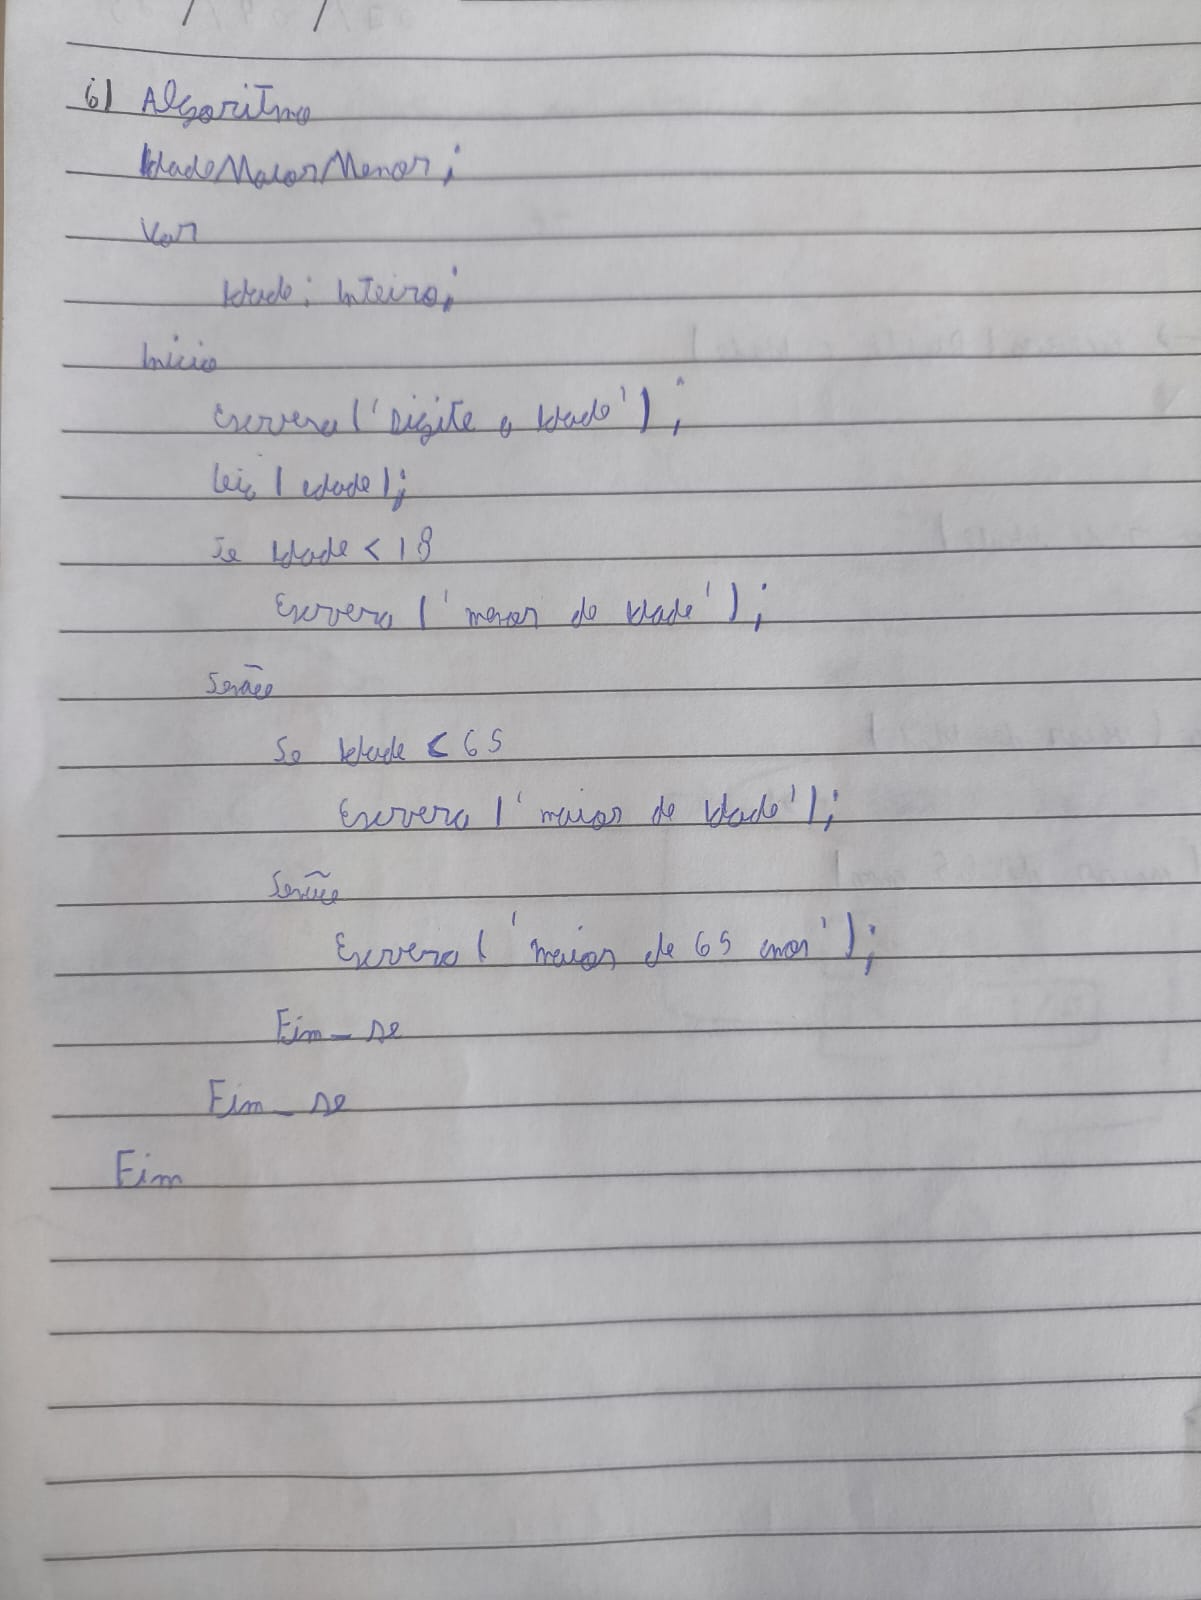 6) Algoritmo
IdadeMaiorMenor;
Var
Idade: Inteiro;
Inicio
Escreva ('Digite a Idade');
leia (idade);
Se Idade < 18
Escreva ('menor de Idade');
Senão
Se Idade < 65
Escreva ('maior de Idade');
Senão
Escreva ('maior de 65 anos');
Fim_se
Fim_se
Fim